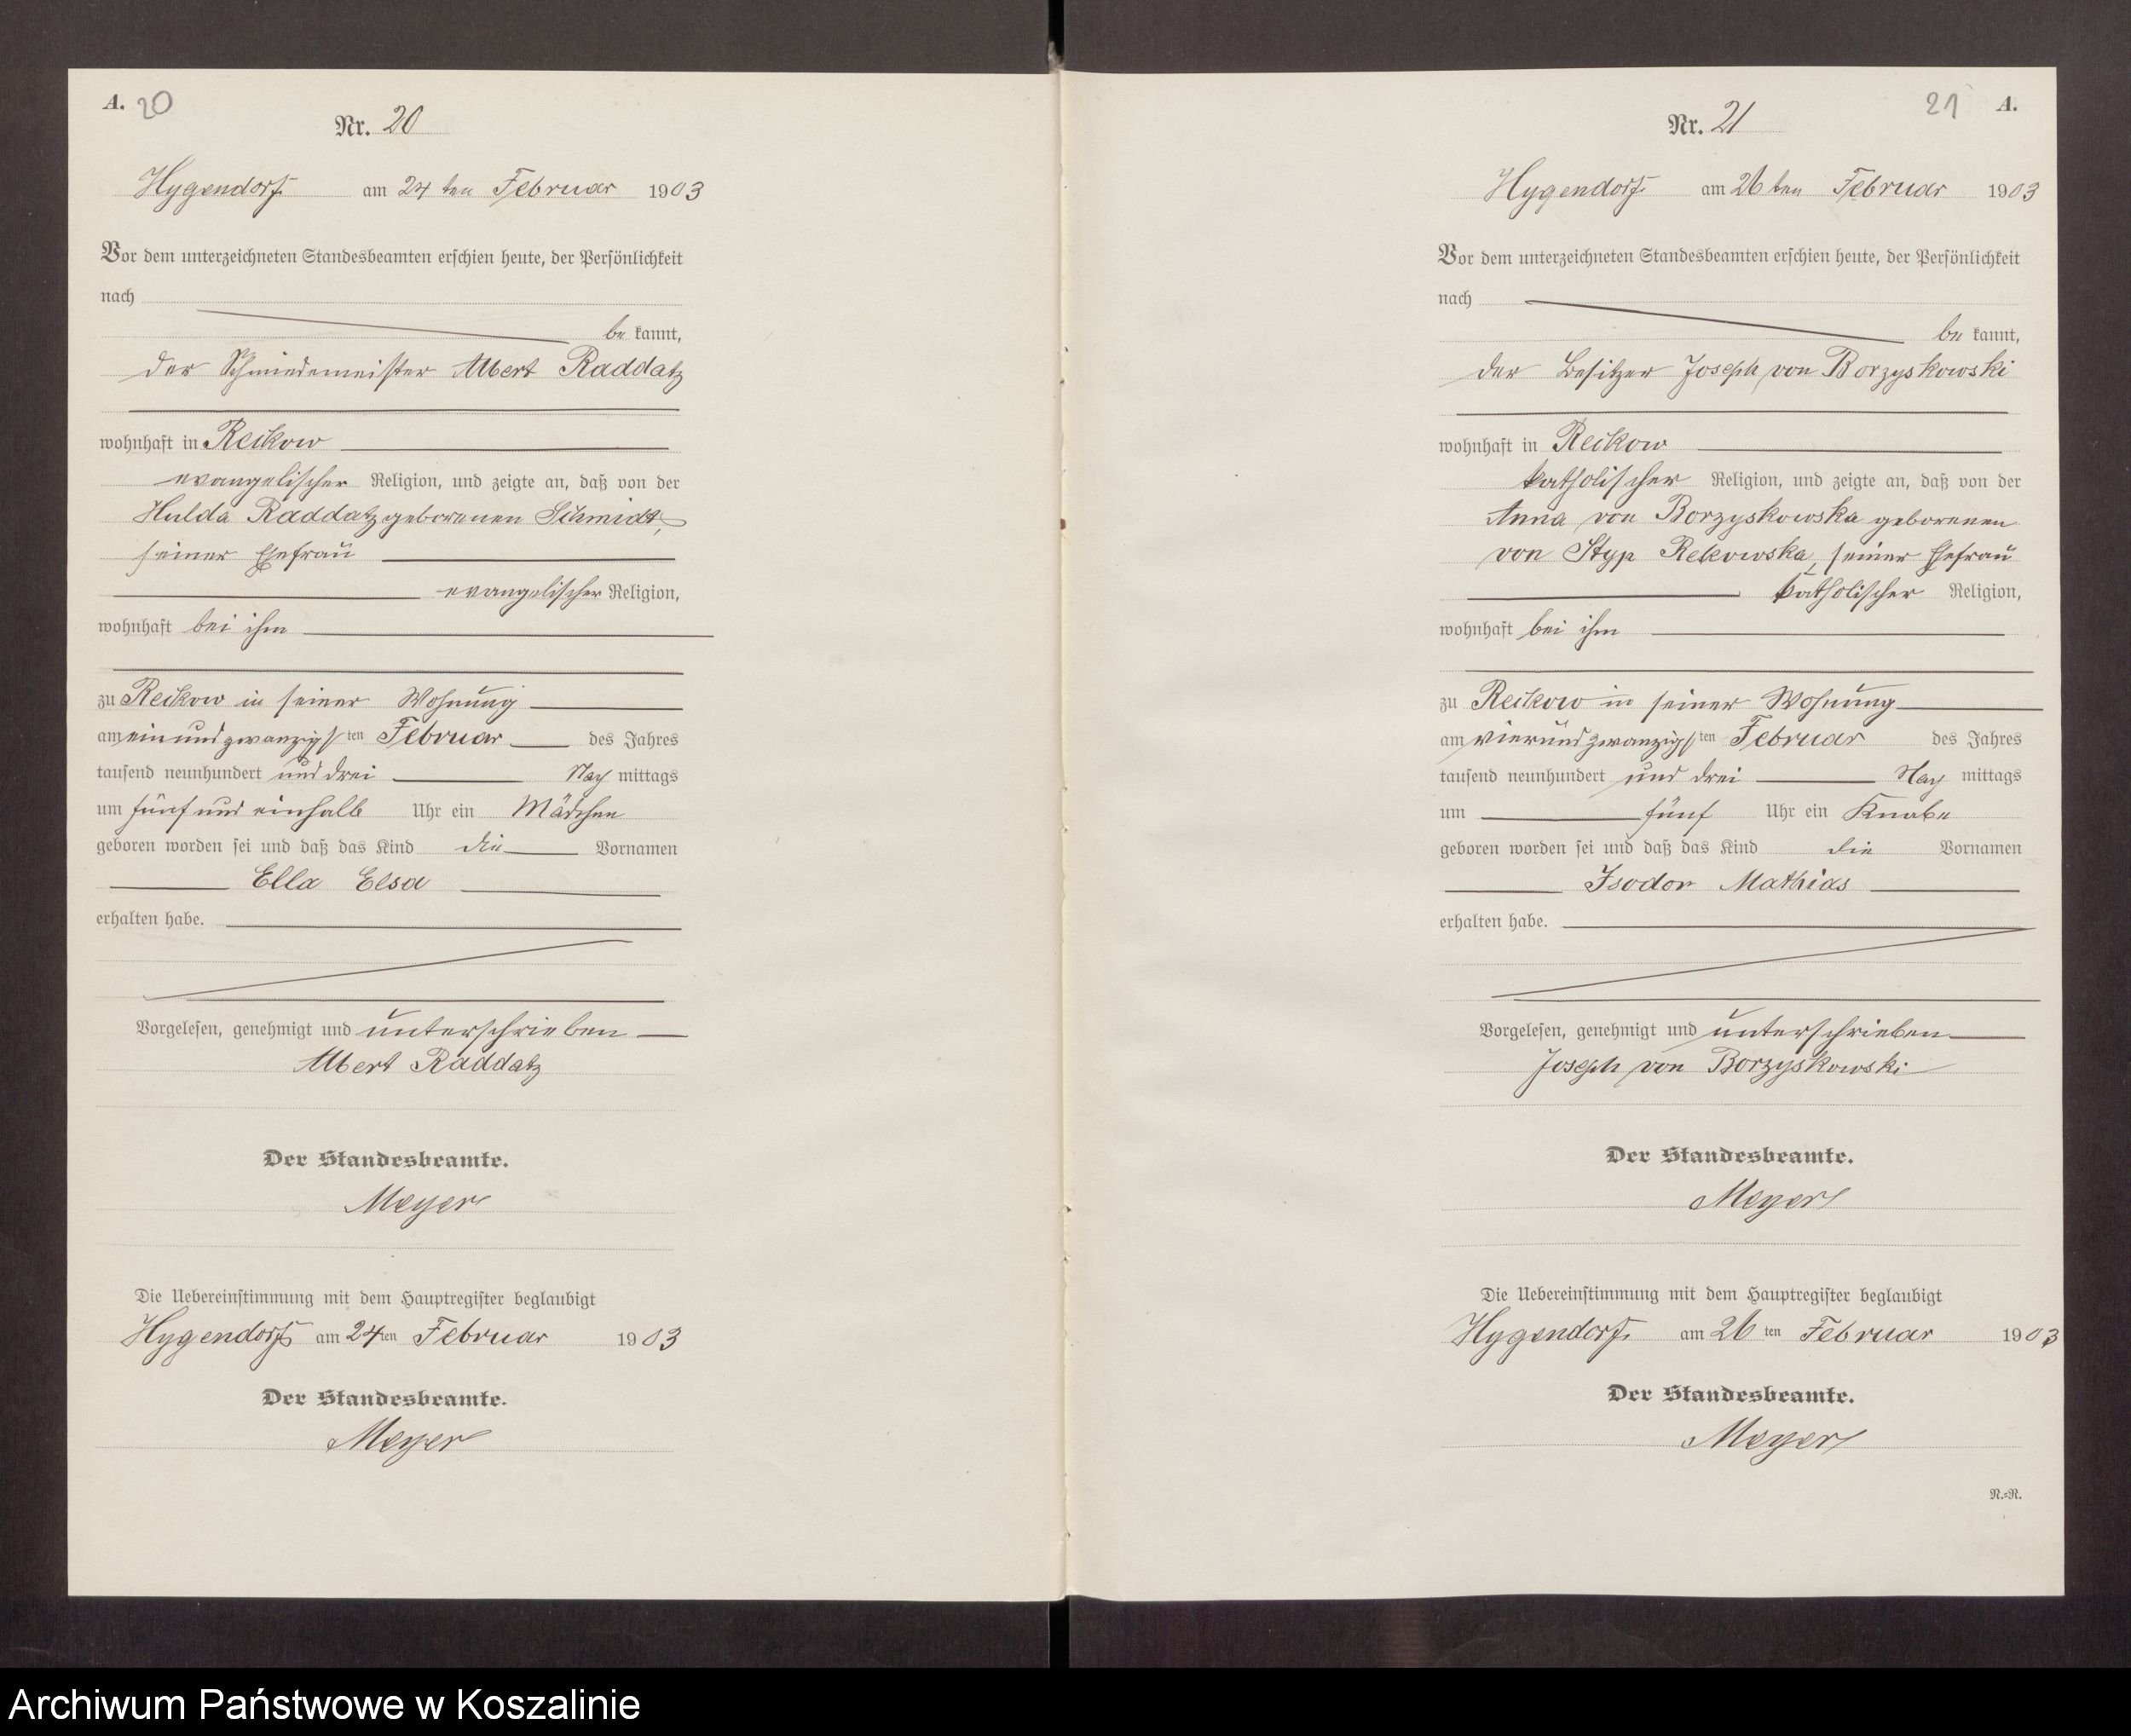 A. 20
Nr. 20
Hygendorf am 24 ten Februar 1903
Vor dem unterzeichneten Standesbeamten erschien heute, der Persönlichkeit
nach
be kannt,
der Schmiedemeister Albert Raddatz
wohnhaft in Reckow
evangelischer Religion, und zeigte an, daß von der
Hulda Raddatz geborenen Schmidt,
seiner Ehefrau
evangelischer Religion,
wohnhaft bei ihm
zu Reckow in seiner Wohnung
am einundzwanzigsten Februar des Jahres
tausend neunhundert und drei Nach mittags
um fünf und einhalb Uhr ein Mädchen
geboren worden sei und daß das Kind die Vornamen
Ella Elsa
erhalten habe.
Vorgelesen, genehmigt und unterschrieben
Albert Raddatz
Der Standesbeamte.
Meyer
Die Uebereinstimmung mit dem Hauptregister beglaubigt
Hygendorf am 24ten Februar 1903
Der Standesbeamte.
Meyer
21 A.
Nr. 21
Hygendorf am 26 ten Februar 1903
Vor dem unterzeichneten Standesbeamten erschien heute, der Persönlichkeit
nach
be kannt,
der Besitzer Joseph von Borzyskowski
wohnhaft in Reckow
katholischer Religion, und zeigte an, daß von der
Anna von Borzyskowska geborenen
von Styp Rekowska, seiner Ehefrau
katholischer Religion,
wohnhaft bei ihm
zu Reckow in seiner Wohnung
am vierundzwanzigsten Februar des Jahres
tausend neunhundert und drei Nach mittags
um fünf Uhr ein Knabe
geboren worden sei und daß das Kind die Vornamen
Isodor Mathias
erhalten habe.
Vorgelesen, genehmigt und unterschrieben
Joseph von Borzyskowski
Der Standesbeamte.
Meyer
Die Uebereinstimmung mit dem Hauptregister beglaubigt
Hygendorf am 26 ten Februar 1903
Der Standesbeamte.
Meyer
N.=R.
Archiwum Państwowe w Koszalinie